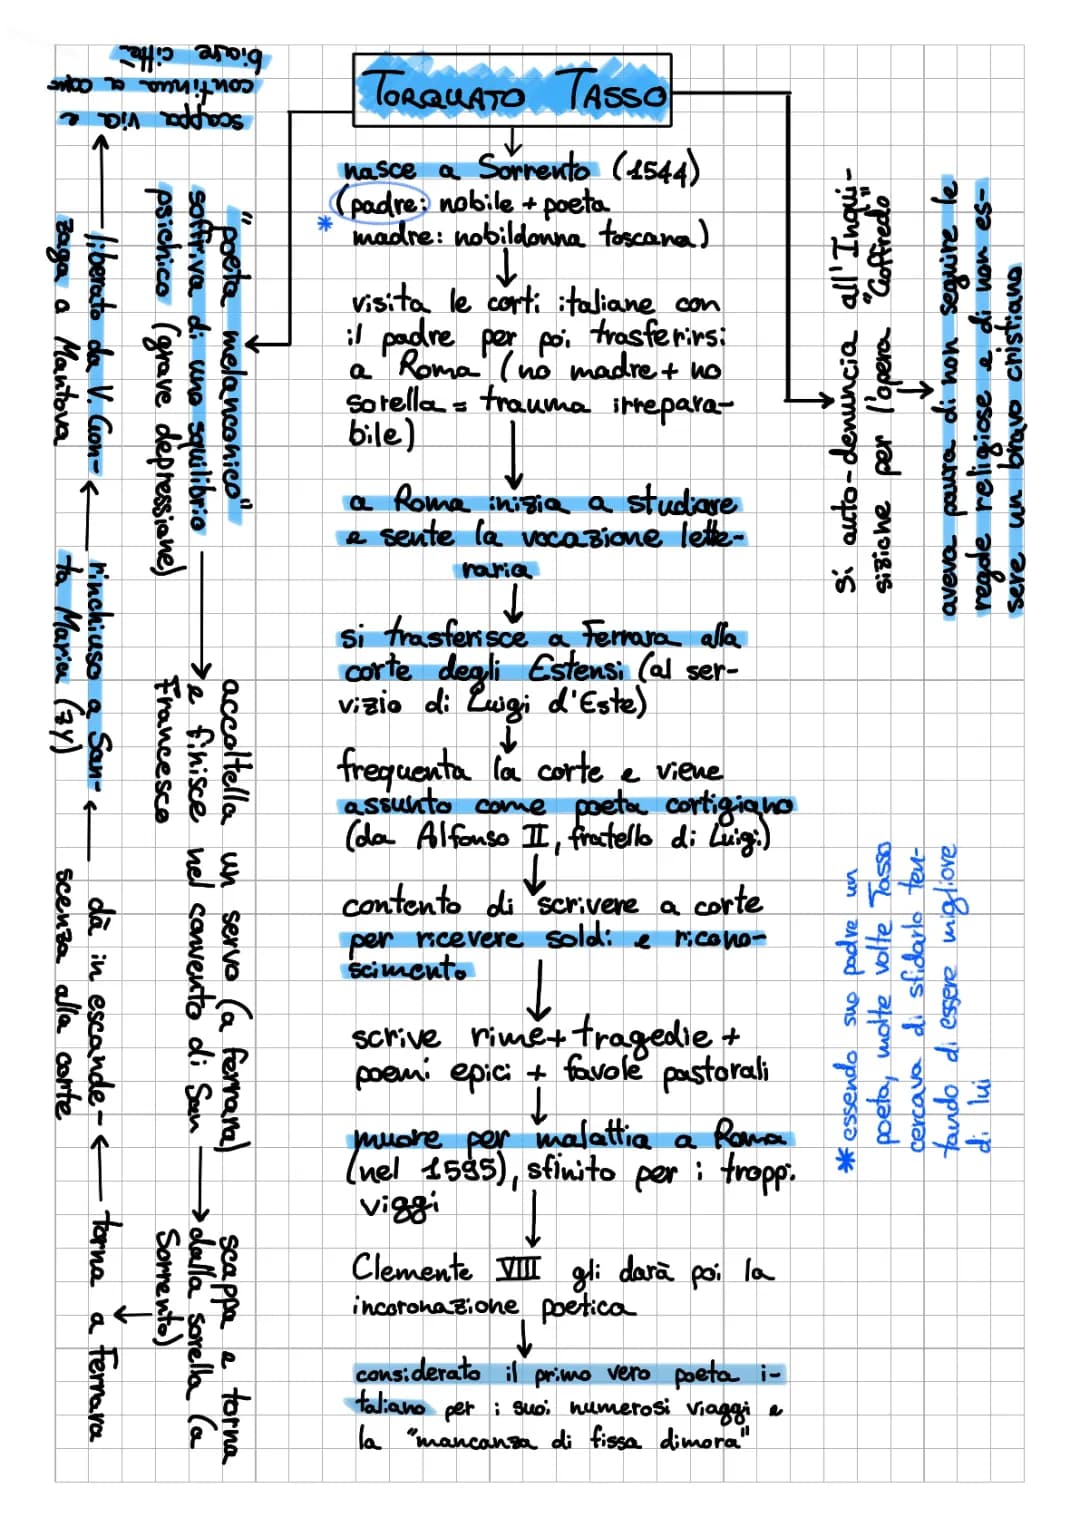 TORQUATO TASSO
nasce a Sorrento (1544)
(padre: nobile + poeta
*
madre: nobildonna toscana)
visita le corti italiane con
il padre per poi trasferirsi
a Roma (no madre + no
sorella = trauma irrepara-
bile)
a Roma inizia a studiare
e sente la vocazione lette-
raria
si trasferisce a Ferrara alla
corte degli Estensi (al ser-
vizio di Luigi d'Este)
frequenta la corte e viene
assunto come poeta cortigiano
(da Alfonso II, fratello di Luigi)
contento di scrivere a corte
per ricevere soldi e ricono-
scimento
scrive rime + tragedie +
poemi epici + favole pastorali
muore per malattia a Roma
(nel 1595), sfinito per i troppi
viggi
Clemente VIII gli darà poi la
incoronazione poetica
considerato il primo vero poeta i-
taliano per i suoi numerosi viaggi e
la "mancanza di fissa dimora"
"poeta melanconico"
soffriva di uno squilibrio
psichico (grave depressione)
accoltella un servo (a ferrara)
e finisce nel convento di San
Francesco
scappa e torna
dalla sorella (a
Sorrento)
torna a Ferrara
dà in escande-
scenza alla corte
rinchiuso a San-
ta Maria (7y)
liberato da V. Gon-
zaga a Mantova
scappa via e
continua a cam
biare città
Si auto-denuncia all'Inqui-
sizione per l'opera "Goffredo"
aveva paura di non seguire le
regole religiose e di non es-
sere un bravo cristiano
* essendo suo padre un
poeta, molte volte Tasso
cercava di sfidarlo ten-
tando di essere migliore
di lui